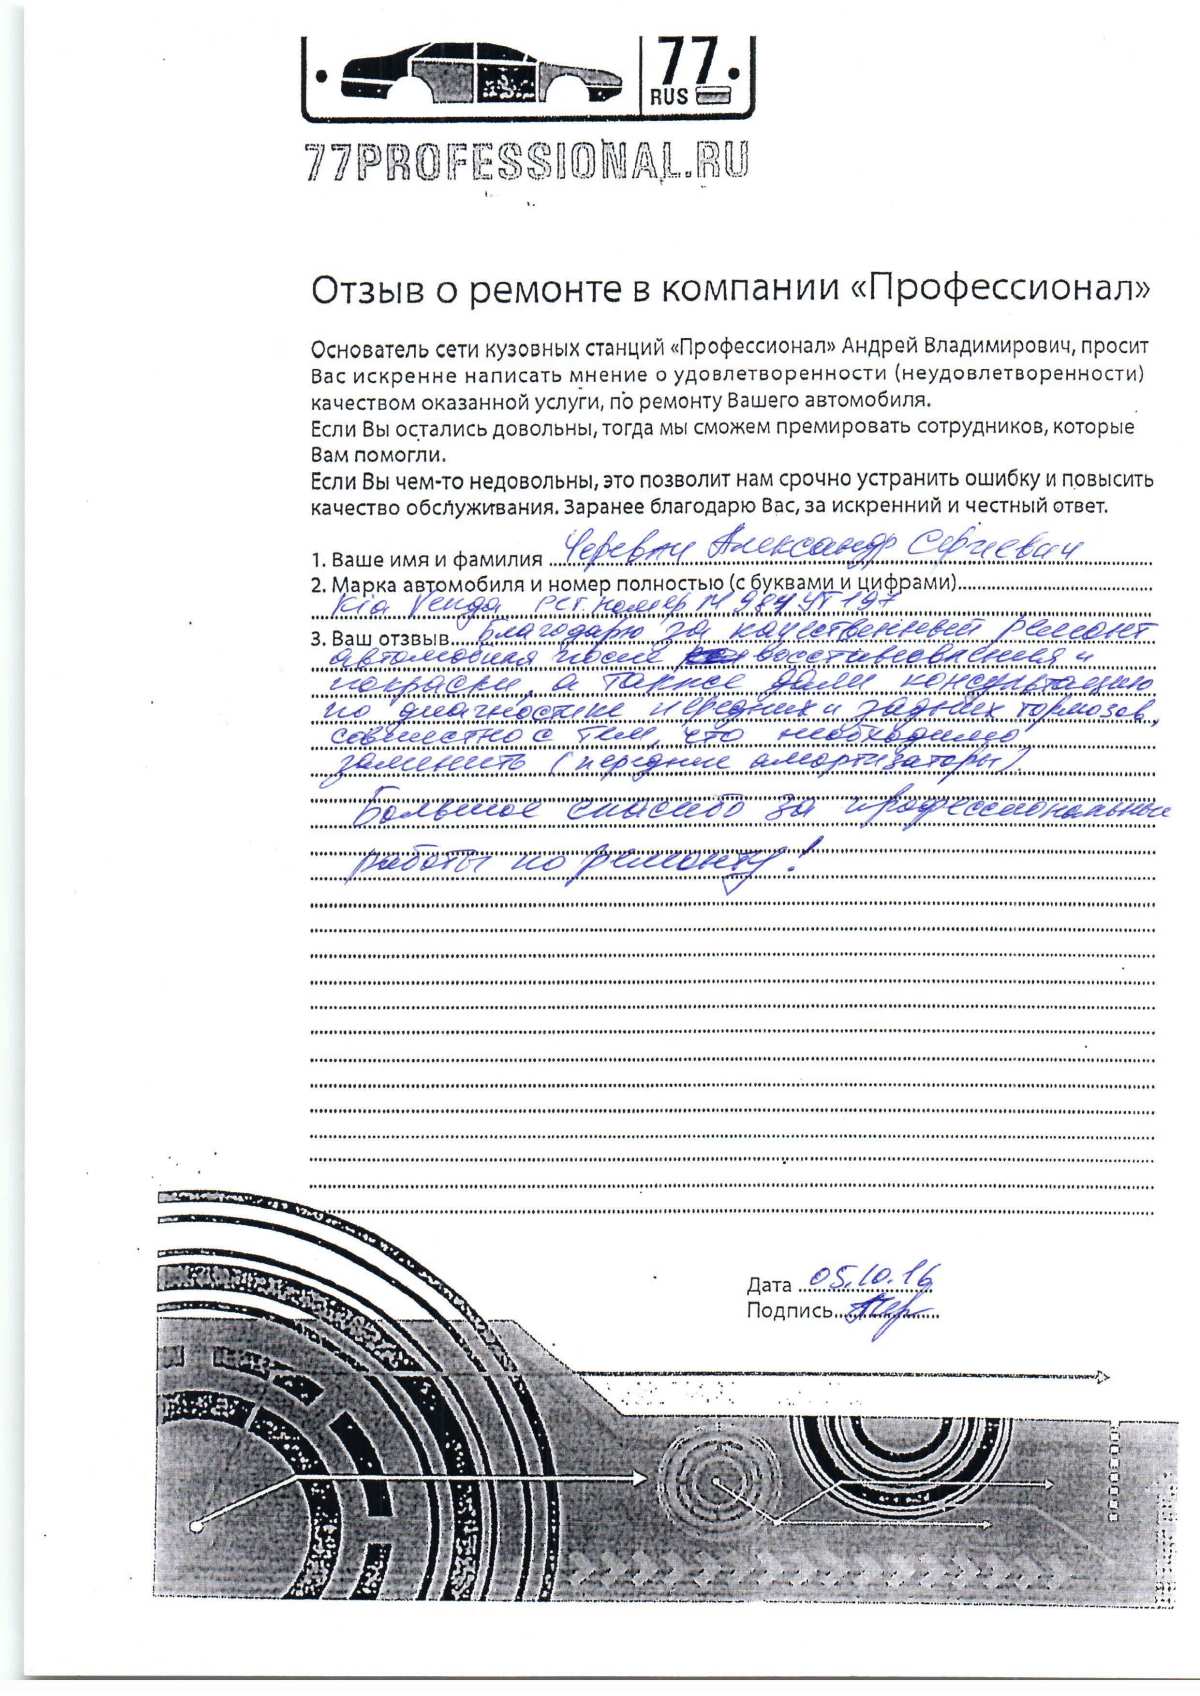 77
RUS
77PROFESSIONAL.RU
Отзыв о ремонте в компании «Профессионал»
Основатель сети кузовных станций «Профессионал» Андрей Владимирович, просит
Вас искренне написать мнение о удовлетворенности (неудовлетворенности)
качеством оказанной услуги, по ремонту Вашего автомобиля.
Если Вы остались довольны, тогда мы сможем премировать сотрудников, которые
Вам помогли.
Если Вы чем-то недовольны, это позволит нам срочно устранить ошибку и повысить
качество обслуживания. Заранее благодарю Вас, за искренний и честный ответ.
1. Ваше имя и фамилия Александр Сергеевич
2. Марка автомобиля и номер полностью (с буквами и цифрами)
Kia Venga рег. номер М 984 УТ 197
3. Ваш отзвыв Благодарю за качественный ремонт
автомобиля после восстановления и
покраски, а также дали консультацию
по диагностике передних и задних тормозов,
совместно с тем, что необходимо
заменить (передние амортизаторы)
Большое спасибо за профессиональные
работы по ремонту!
Дата 05.10.16
Подпись